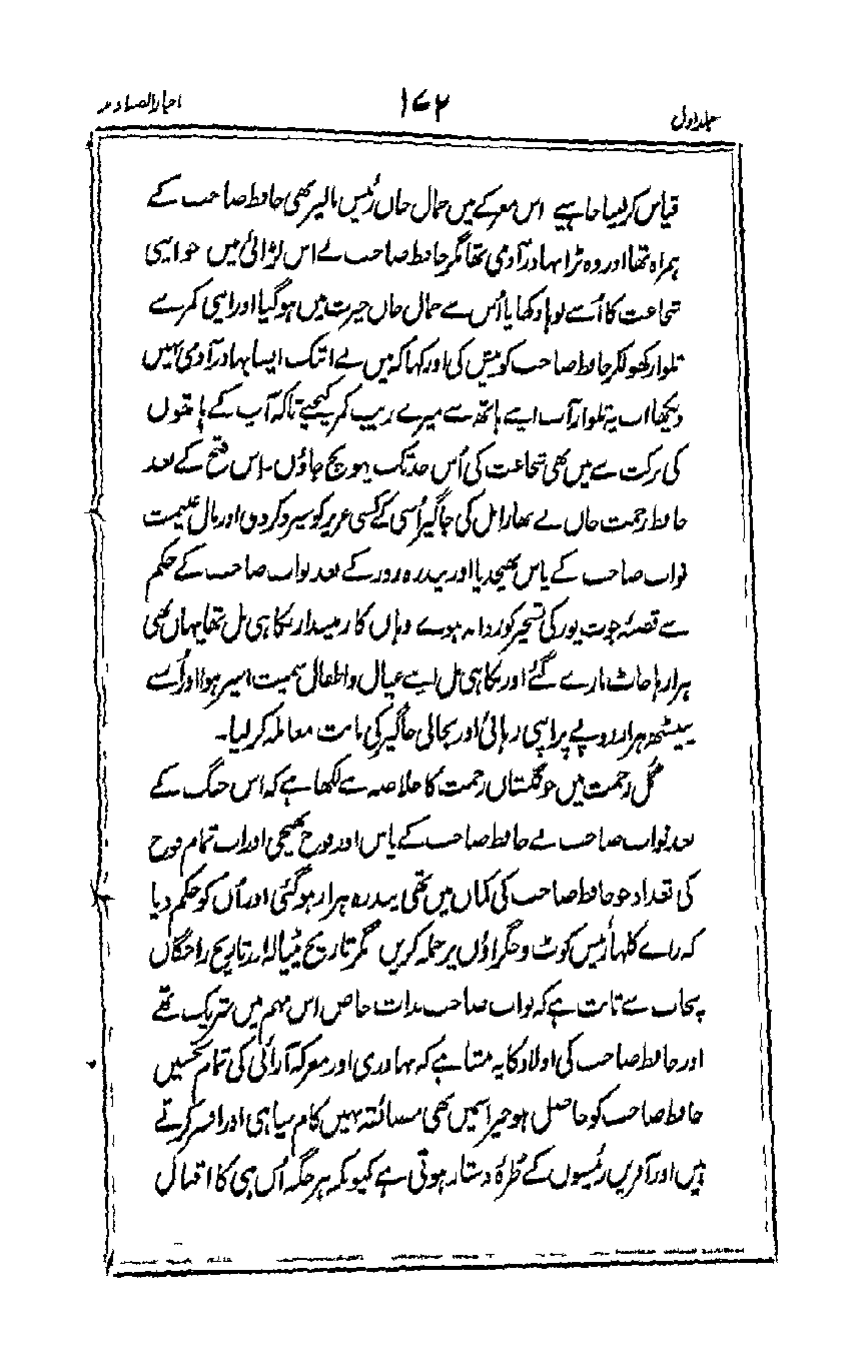 اخبار الصنادید
۱۷۲
جلد اول
قیاس کرلینا چاہیے اس معرکے میں جمال خاں رئیس مالیر بھی حافظ صاحب کے
ہمراہ تھا اور وہ بڑا بہادر آدمی تھا مگر حافظ صاحب نے اس لڑائی میں جو ایسی
شجاعت کا اُسے لوہا دکھایا اُس سے جمال خاں حیرت میں ہوگیا اور اپنی کمر سے
تلوار کھولکر حافظ صاحب کو پیش کی اور کہا کہ میں نے ابتک ایسا بہادر آدمی نہیں
دیکھا اب یہ تلوار آپ اپنے ہاتھ سے میرے زیب کمر کیجیے تاکہ آپ کے ہاتھوں
کی برکت سے میں بھی شجاعت کی اُس حد تک پہونچ جاؤں۔ اس فتح کے بعد
حافظ رحمت خاں نے بھارا مل کی جاگیر اُسی کے کسی عزیز کو سپرد کردی اور مال غنیمت
نواب صاحب کے پاس بھیجدیا اور پندرہ روز کے بعد نواب صاحب کے حکم
سے قصبۂ جوت پور کی تسخیر کو روانہ ہوے وہاں کا زمیندار نکاہی مل تھا یہاں بھی
ہزارہا جاٹ مارے گئے اور نکاہی مل اپنے عیال و اطفال سمیت اسیر ہوا اور اُسنے
پینسٹھ ہزار روپے پر اپنی رہائی اور بحالی جاگیر کی بابت معاملہ کرلیا۔
گل رحمت میں جو گلستان رحمت کا خلاصہ ہے لکھا ہے کہ اس جنگ کے
بعد نواب صاحب نے حافظ صاحب کے پاس اور فوج بھیجی اور اب تمام فوج
کی تعداد جو حافظ صاحب کی کمان میں تھی پندرہ ہزار ہوگئی اور اُن کو حکم دیا
کہ راے کلہا رئیس کوٹ و جگراؤں پر حملہ کریں مگر تاریخ پٹیالہ اور تاریخ راجگان
پنجاب سے ثابت ہے کہ نواب صاحب بذات خاص اس مہم میں شریک تھے
اور حافظ صاحب کی اولاد کا یہ منشا ہے کہ بہادری اور معرکہ آرائی کی تمام تحسین
حافظ صاحب کو حاصل ہو خیر اسمیں بھی مضائقہ نہیں کام سپاہی اور افسر کرتے
ہیں اور آفرین رئیسوں کے طرۂ دستار ہوتی ہے کیونکہ ہر جگہ اُس ہی کا اقبال